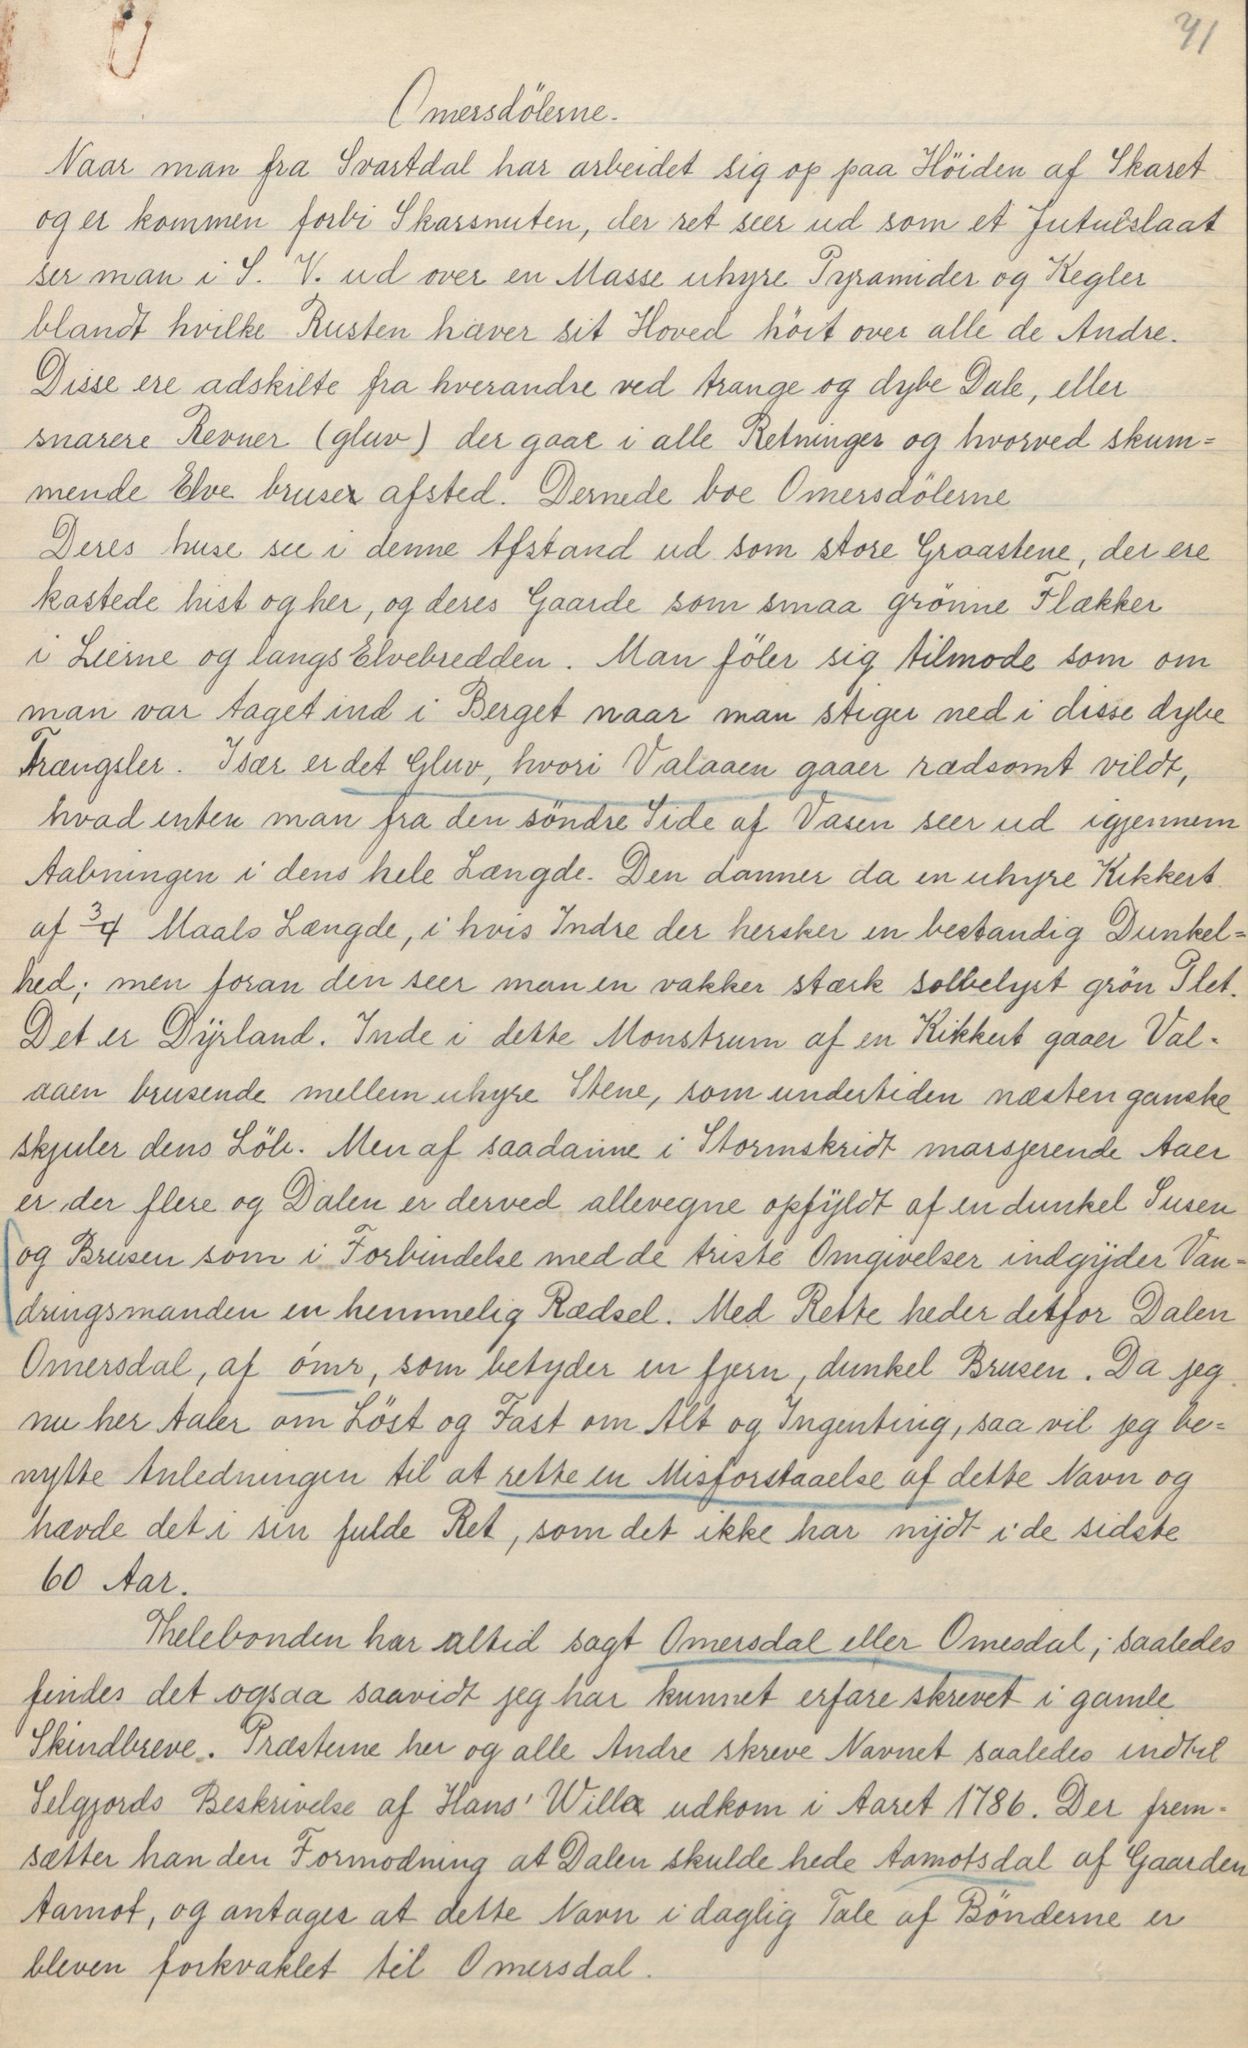 41
Omersdölerne.
Naar man fra Svartdal har arbeidet sig op paa Höiden af Skaret
og er kommen forbi Skarsnuten, der ret seer ud som et Jutulslaat
ser man i S. V. ud over en Masse uhyre Pyramider og Kegler
blandt hvilke Rusten hæver sit Hoved höit over alle de Andre.
Disse ere adskilte fra hverandre ved trange og dybe Dale, eller
snarere Revner (gluv) der gaar i alle Retninger og hvorved skum=
mende Elve bruser afsted. Dernede boe Omersdölerne
Deres huse see i denne Afstand ud som store Graastene, der ere
kastede hist og her, og deres Gaarde som smaa grönne Flækker
i Lierne og langs Elvebredden. Man föler sig tilmode som om
man var taget ind i Berget naar man stiger ned i disse dybe
Trængsler. Især er det Gluv, hvori Valaaen gaaer rædsomt vildt,
hvad enten man fra den söndre Side af Vasen seer ud igjennem
Aabningen i dens hele Længde. Den danner da en uhyre Kikkert
af 3/4 Maals Længde, i hvis Indre der hersker en bestandig Dunkel=
hed; men foran den seer man en vakker stærk solbelyst grön Plet.
Det er Dÿrland. Inde i dette Monstrum af en Kikkert gaaer Val-
aaen brusende mellem uhyre Stene, som undertiden næsten ganske
skjuler dens Löb. Men af saadanne i Stormskridt marsjerende Aaer
er der flere og Dalen er derved allevegne opfÿldt af en dunkel Susen
og Brusen som i Forbindelse med de triste Omgivelser indgÿder Van=
dringsmanden en hemmelig Rædsel. Med Rette heder detfor Dalen
Omersdal, af ómr, som betyder en fjern, dunkel Brusen. Da jeg
nu her taler om Löst og Fast om Alt og Ingenting, saa vil jeg be=
nytte Anledningen til at rette en Misforstaaelse af dette Navn og
hævde det i sin fulde Ret, som det ikke har nÿdt i de sidste
60 Aar.
Thelebonden har altid sagt Omersdal eller Omesdal; saaledes
findes det ogsaa saavidt jeg har kunnet erfare skrevet i gamle
Skindbreve. Præsterne her og alle Andre skreve Navnet saaledes indtil
Selgjords Beskrivelse af Hans' Wille udkom i Aaret 1786. Der frem-
sætter han den Formodning at Dalen skulde hede Aamotsdal af Gaarden
Aamot, og antages at dette Navn i daglig Tale af Bönderne er
bleven forkvaklet til Omersdal.